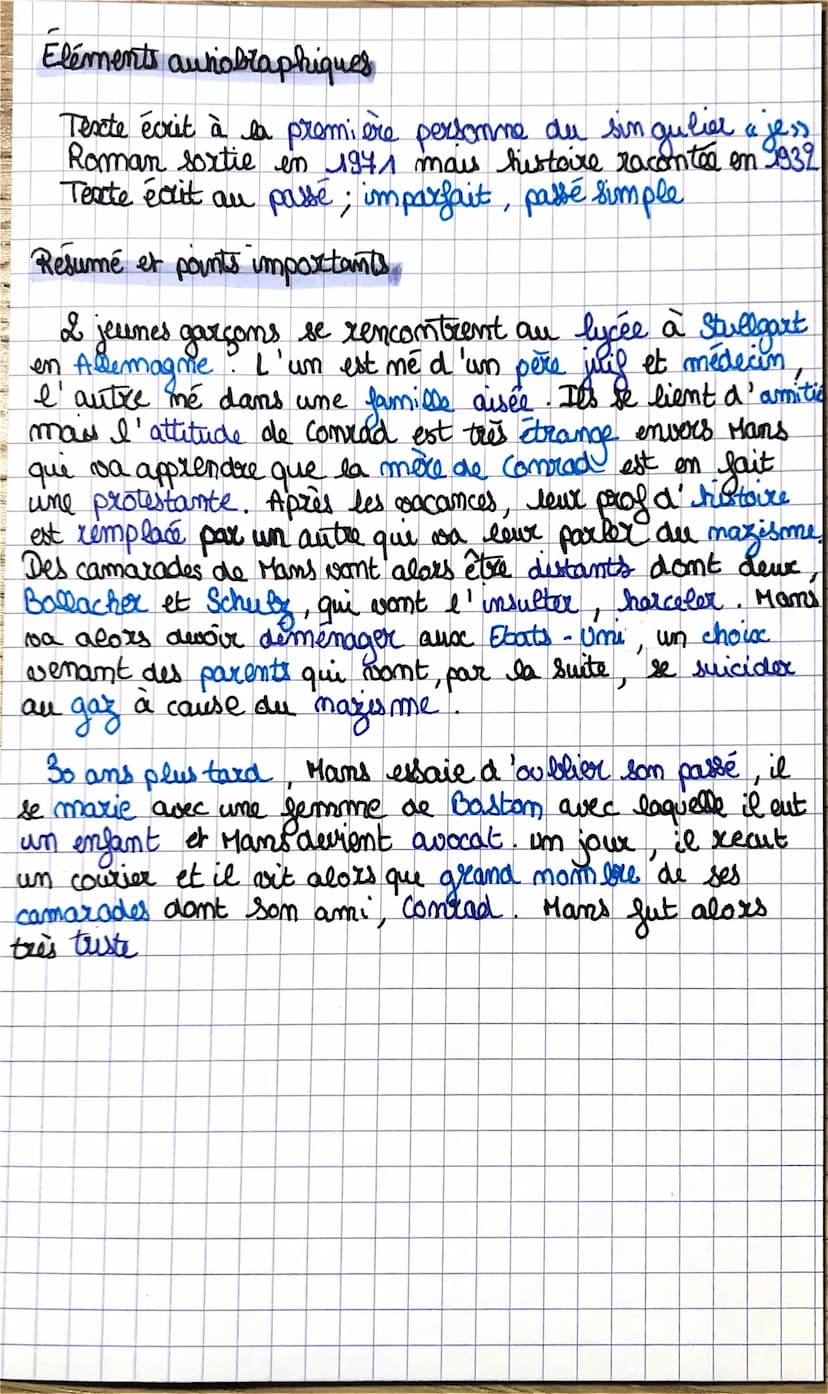 Éléments autiobraphiques
Texte écrit à la première personne du singulier « je »
Roman sortie en 1971 mais histoire racontée en 1932
Texte écrit au passé ; imparfait, passé simple
Résumé et points importants
2 jeunes garçons se rencontrent au lycée à Stuttgart
en Allemagne. L'un est né d'un père juif et médecin,
l'autre né dans une famille aisée. Ils se lient d'amitié
mais l'attitude de Conrad est très étrange envers Hans
qui va apprendre que la mère de Conrad est en fait
une protestante. Après les vacances, leur prof d'histoire
est remplacé par un autre qui va leur parler du nazisme.
Des camarades de Hans vont alors être distants dont deux,
Bollacher et Schulz, qui vont l'insulter, harceler. Hans
va alors devoir déménager aux Etats-Uni, un choix
venant des parents qui vont, par la suite, se suicider
au gaz à cause du nazisme.
30 ans plus tard, Hans essaie d'oublier son passé, il
se marie avec une femme de Boston avec laquelle il eut
un enfant et Hans devient avocat. un jour, il recut
un courier et il vit alors que grand nombre de ses
camarades dont son ami, Conrad. Hans fut alors
très triste